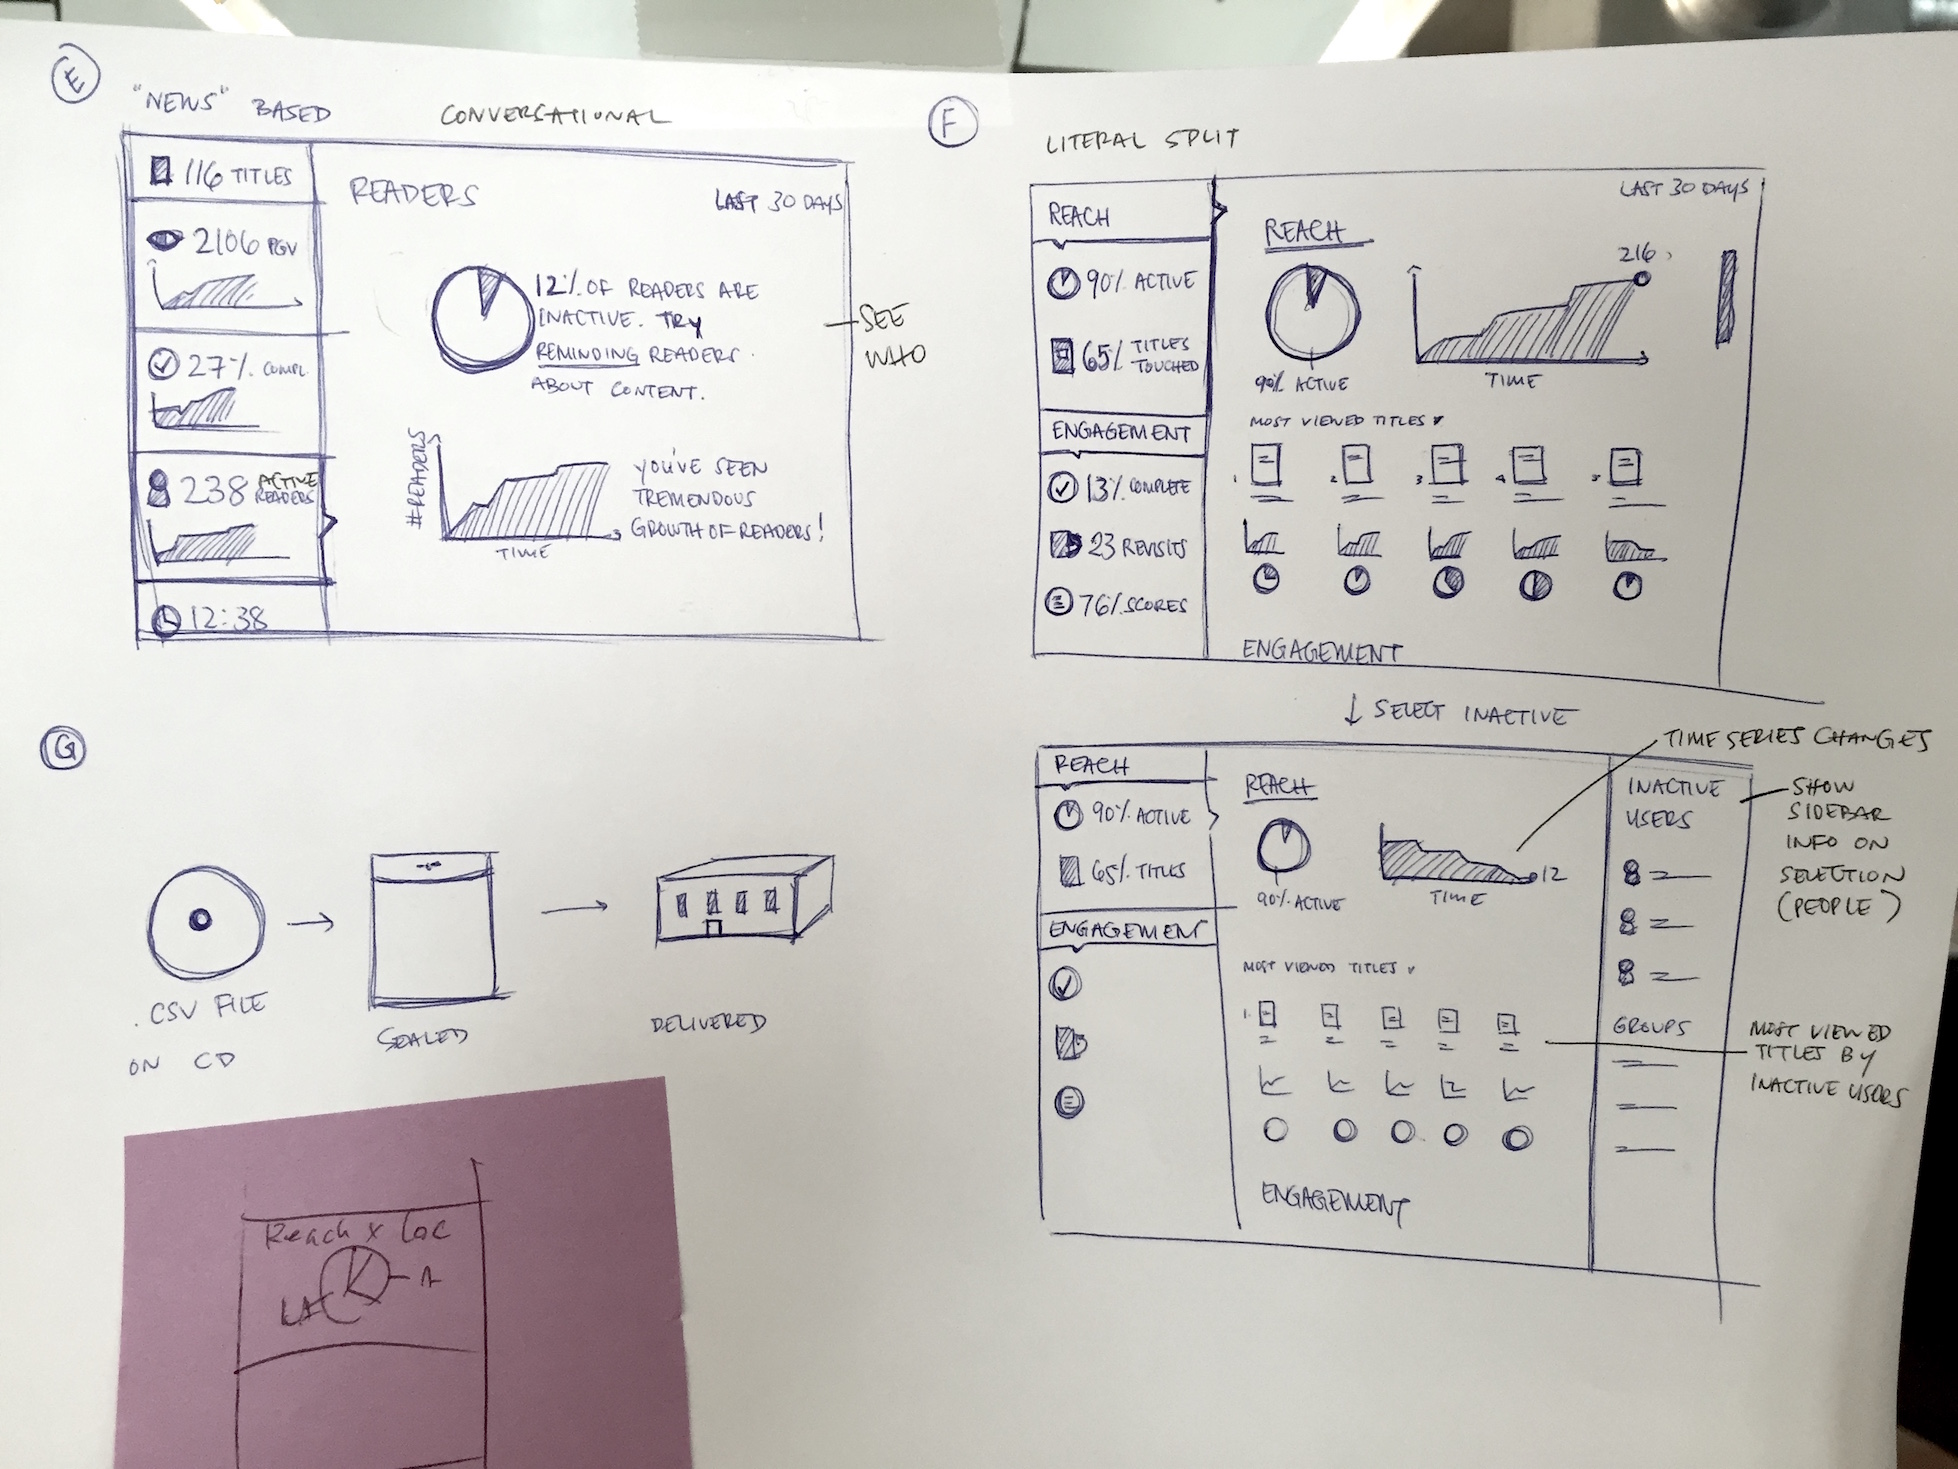 E
"NEWS" BASED
CONVERSATIONAL
116 TITLES
2106 PGV
27% COMPL.
238 ACTIVE
READERS
12:38
READERS
LAST 30 DAYS
12% OF READERS ARE
INACTIVE. TRY
REMINDING READERS
ABOUT CONTENT.
SEE
WHO
#READERS
TIME
YOU'VE SEEN
TREMENDOUS
GROWTH OF READERS!
F
LITERAL SPLIT
REACH
90% ACTIVE
65% TITLES
TOUCHED
ENGAGEMENT
13% COMPLETE
23 REVISITS
76% SCORES
LAST 30 DAYS
REACH
90% ACTIVE
216
TIME
MOST VIEWED TITLES
1.
2.
3.
4.
5.
ENGAGEMENT
↓ SELECT INACTIVE
REACH
90% ACTIVE
65% TITLES
ENGAGEMENT
REACH
90% ACTIVE
12
TIME
MOST VIEWED TITLES
1.
ENGAGEMENT
INACTIVE
USERS
GROUPS
TIME SERIES CHANGES
SHOW
SIDEBAR
INFO ON
SELECTION
(PEOPLE)
MOST VIEWED
TITLES BY
INACTIVE USERS
G
.CSV FILE
ON CD
SEALED
DELIVERED
Reach x Loc
LA